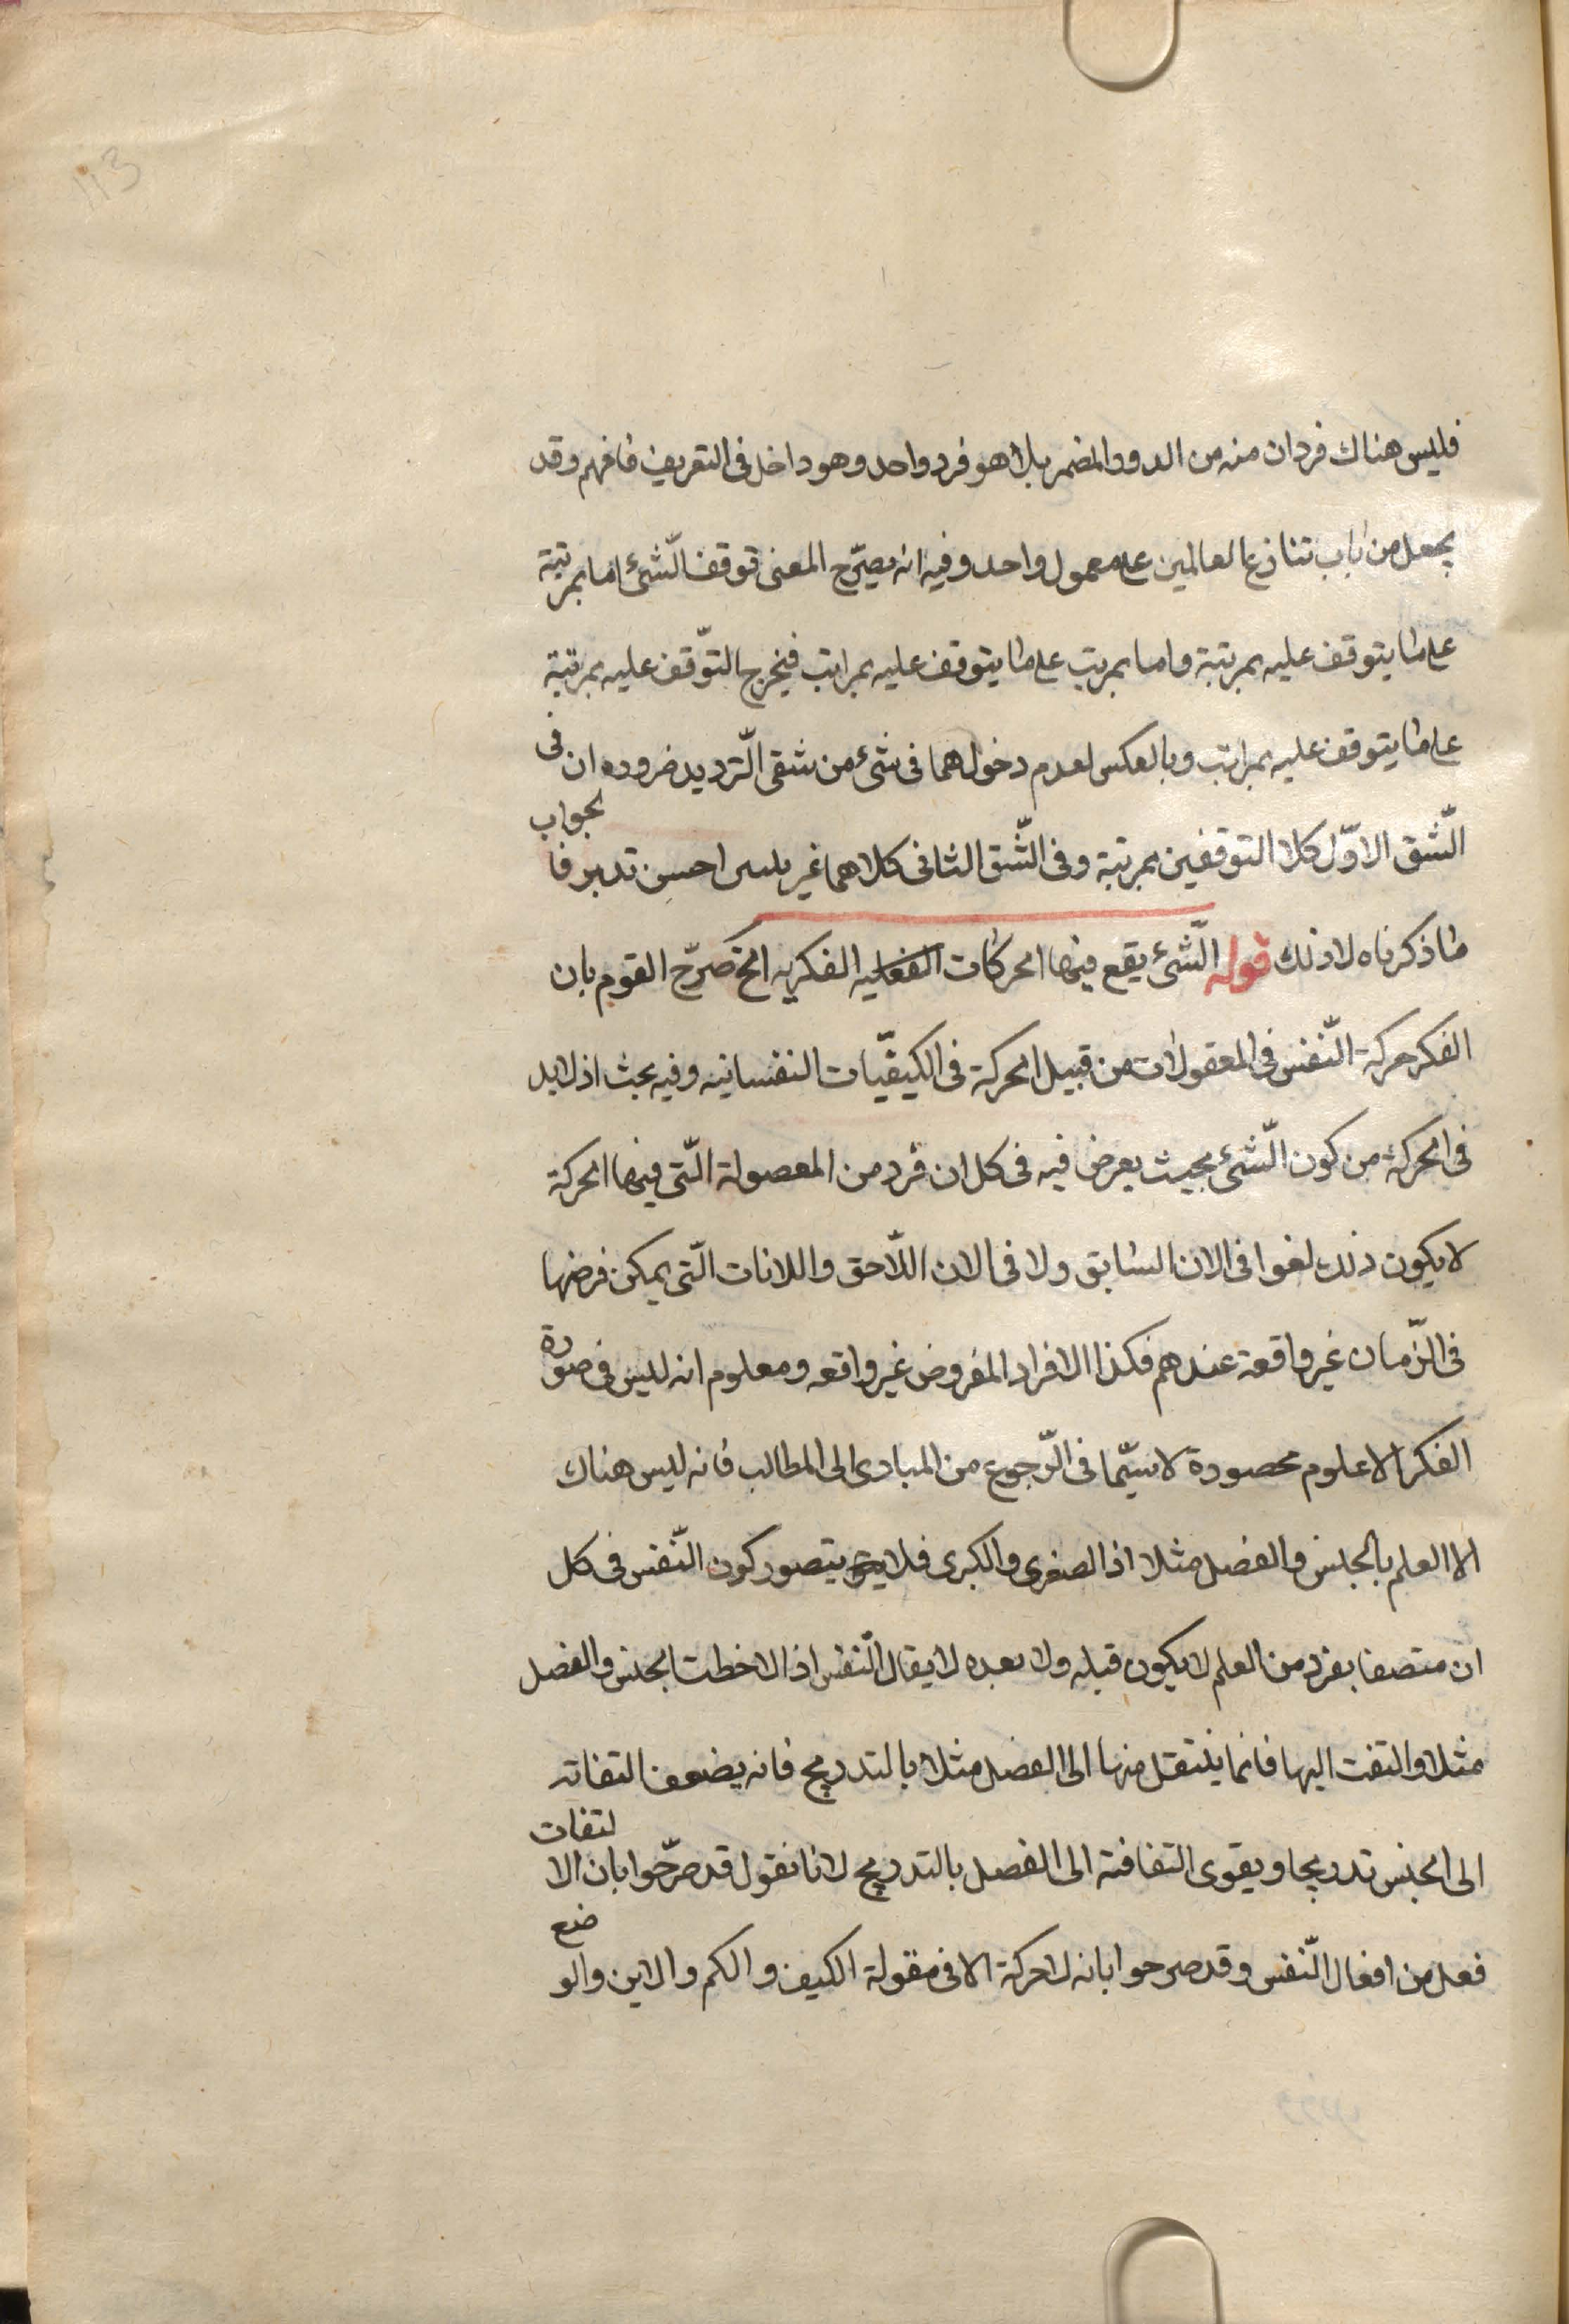 113
فليس هناك فردان منه من الدور المضمر بل هو فرد واحد وهو داخل فى التعريف فافهم وقد
يجعل من باب تنازع العالمين على معمول واحد وفيه انه يصيّر المعنى توقف الشّئ اما بمرتبة
على ما يتوقف عليه بمرتبة واما بمرتب على ما يتوقف عليه بمراتب فيخرج التوّقف عليه بمرتبة
على ما يتوقف عليه بمراتب وبالعكس لعدم دخولهما فى شئ من شقى التّرديد ضروره ان فى
الشّق الاوّل كلا التوقفين بمرتبة وفى الشّق الثانى كلاهما غير احسن تدبر فالجواب
ما ذكرناه لا ذلك قوله الشّئ يقع فيها الحركات الفكريه الخ صرّح القوم بان
الفكر حركة النّفس فى المعقولات من قبيل الحركة فى الكيفيّات النفسانيه وفيه بحث اذ لا بد
فى الحركة من كون الشّئ بحيث يعرض فيه فى كل ان فرد من المعصولة الّتى فيها الحركة
لا يكون ذلك لغوا فى الان السابق ولا فى الان اللّاحق واللانات الّتى يمكن فرضها
فى الزّمان غير واقعة عندهم فكذا الافراد المفروض غير واقعه ومعلوم انه ليس فى صورة
الفكر الا علوم محصورة لا سيّما فى الرّجوع من المبادى الى المطالب فانه ليس هناك
الا العلم بالجنس والفصل مثلا اذ الصغرى والكبرى فلا يتصور كون النّفس فى كل
ان متصفا بفرد من العلم لا يكون قبله ولا بعده لا يقال النّفس اذا لاخطت الجنس والفصل
مثلا والتفت اليها فانما ينتقل منها الى الفصل مثلا بالتدريج فانه يضعف التفاته
الى الجنس تدريجا ويقوى التفافته الى الفصل بالتدريج لانا نقول قد صرّحوا بان الالتفات
فعل من افعال النّفس وقد صرحوا بانه لا حركة الا فى مقولة الكيف والكم والاين والوضع